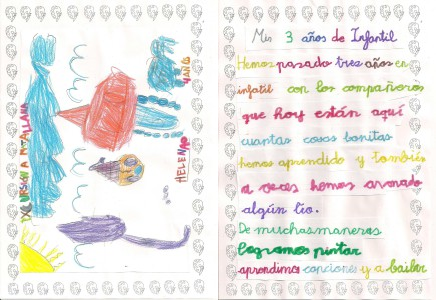 EXCURSIÓN A MATALLANA
HELENA
4 AÑOS
Mis 3 años de Infantil
Hemos pasado tres años en
infatil con los compañeros
que hoy están aquí
cuantas cosas bonitas
hemos aprendido y también
a veces hemos armado
algún lío.
De muchas maneras
logramos pintar
aprendimos canciones y a bailar